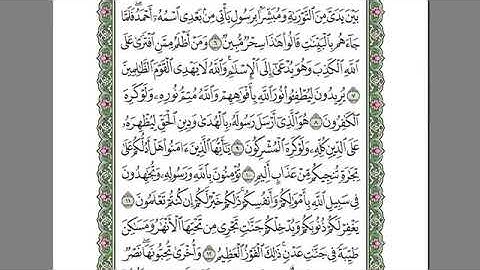 بَيْنَ يَدَيَّ مِنَ التَّوْرَىٰةِ وَمُبَشِّرًۢا بِرَسُولٍ يَأْتِي مِنۢ بَعْدِي ٱسْمُهُۥٓ أَحْمَدُ ۖ فَلَمَّا
جَآءَهُم بِٱلْبَيِّنَٰتِ قَالُوا۟ هَٰذَا سِحْرٌ مُّبِينٌ ٦ وَمَنْ أَظْلَمُ مِمَّنِ ٱفْتَرَىٰ عَلَى
ٱللَّهِ ٱلْكَذِبَ وَهُوَ يُدْعَىٰٓ إِلَى ٱلْإِسْلَٰمِ ۚ وَٱللَّهُ لَا يَهْدِي ٱلْقَوْمَ ٱلظَّٰلِمِينَ
٧ يُرِيدُونَ لِيُطْفِـُٔوا۟ نُورَ ٱللَّهِ بِأَفْوَٰهِهِمْ وَٱللَّهُ مُتِمُّ نُورِهِۦ وَلَوْ كَرِهَ
ٱلْكَٰفِرُونَ ٨ هُوَ ٱلَّذِيٓ أَرْسَلَ رَسُولَهُۥ بِٱلْهُدَىٰ وَدِينِ ٱلْحَقِّ لِيُظْهِرَهُۥ
عَلَى ٱلدِّينِ كُلِّهِۦ وَلَوْ كَرِهَ ٱلْمُشْرِكُونَ ٩ يَٰٓأَيُّهَا ٱلَّذِينَ ءَامَنُوا۟ هَلْ أَدُلُّكُمْ عَلَىٰ
تِجَٰرَةٍ تُنجِيكُم مِّنْ عَذَابٍ أَلِيمٍ ١٠ تُؤْمِنُونَ بِٱللَّهِ وَرَسُولِهِۦ وَتُجَٰهِدُونَ
فِي سَبِيلِ ٱللَّهِ بِأَمْوَٰلِكُمْ وَأَنفُسِكُمْ ۚ ذَٰلِكُمْ خَيْرٌ لَّكُمْ إِن كُنتُمْ تَعْلَمُونَ ١١
يَغْفِرْ لَكُمْ ذُنُوبَكُمْ وَيُدْخِلْكُمْ جَنَّٰتٍ تَجْرِي مِن تَحْتِهَا ٱلْأَنْهَٰرُ وَمَسَٰكِنَ
طَيِّبَةً فِي جَنَّٰتِ عَدْنٍ ۚ ذَٰلِكَ ٱلْفَوْزُ ٱلْعَظِيمُ ١٢ وَأُخْرَىٰ تُحِبُّونَهَا ۖ نَصْرٌ